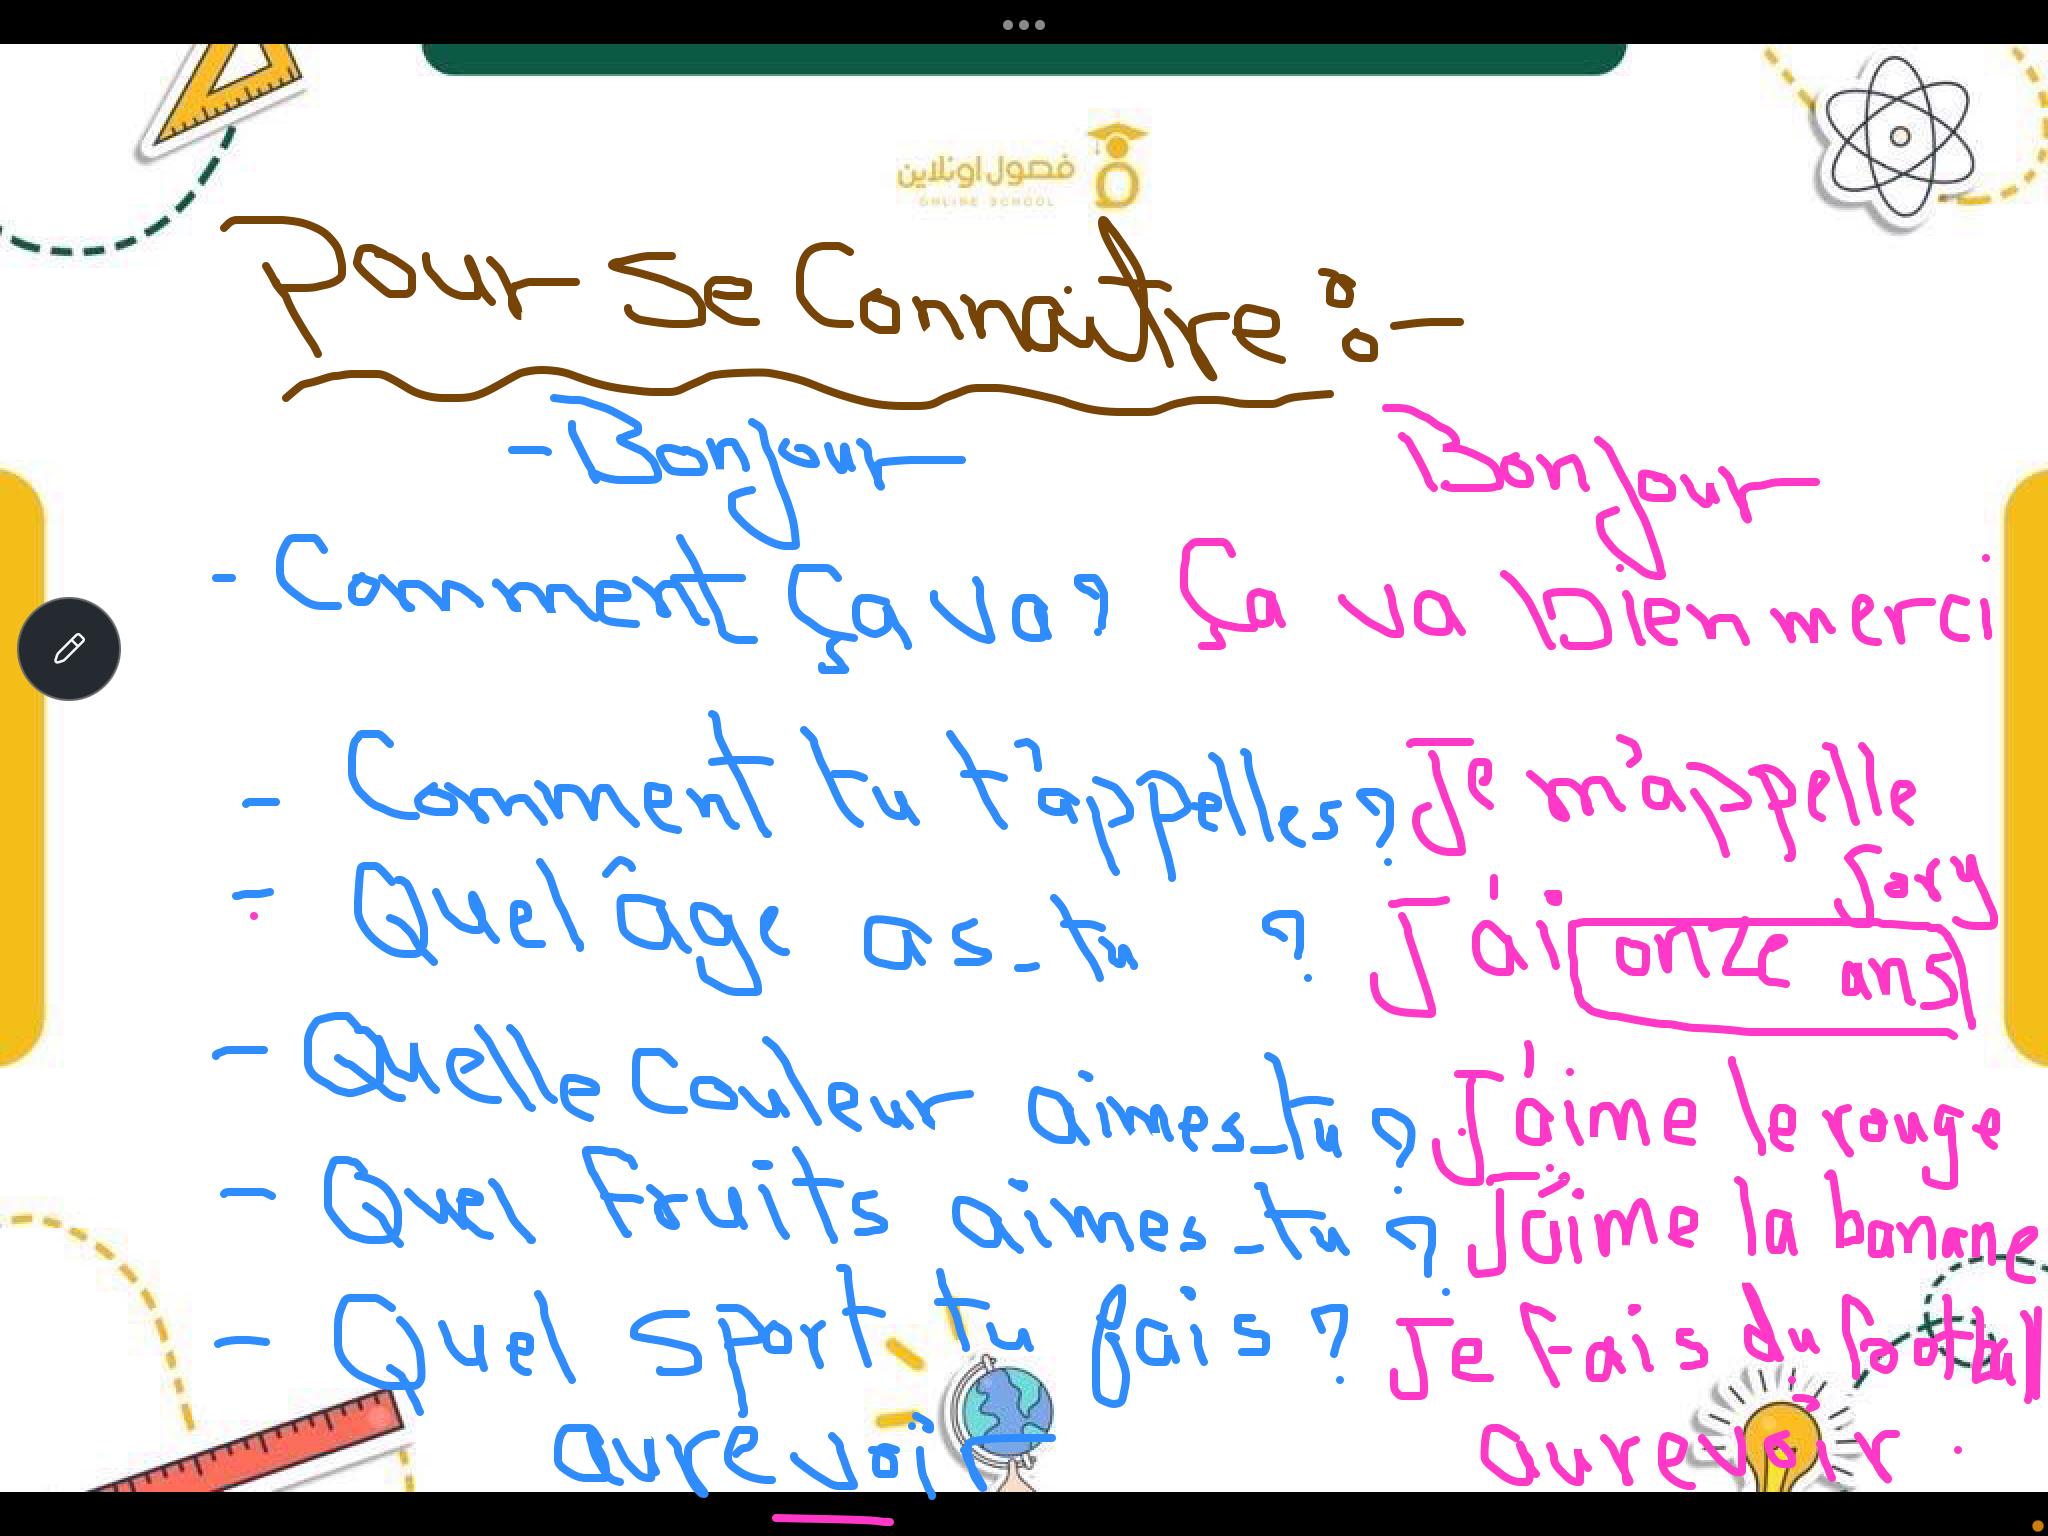 فصول اونلاين
ONLINE SCHOOL
Pour se Connaitre :-
- Bonjour Bonjour
- Comment Ça va? Ça va bien merci
- Comment tu t'appelles? Je m'appelle Jory
- Quel âge as-tu ? J'ai onze ans
- Quelle Couleur aimes-tu ? J'aime le rouge
- Quel Fruits aimes-tu ? J'aime la banane
- Quel sport tu fais ? Je Fais du football
aurevoir aurevoir .